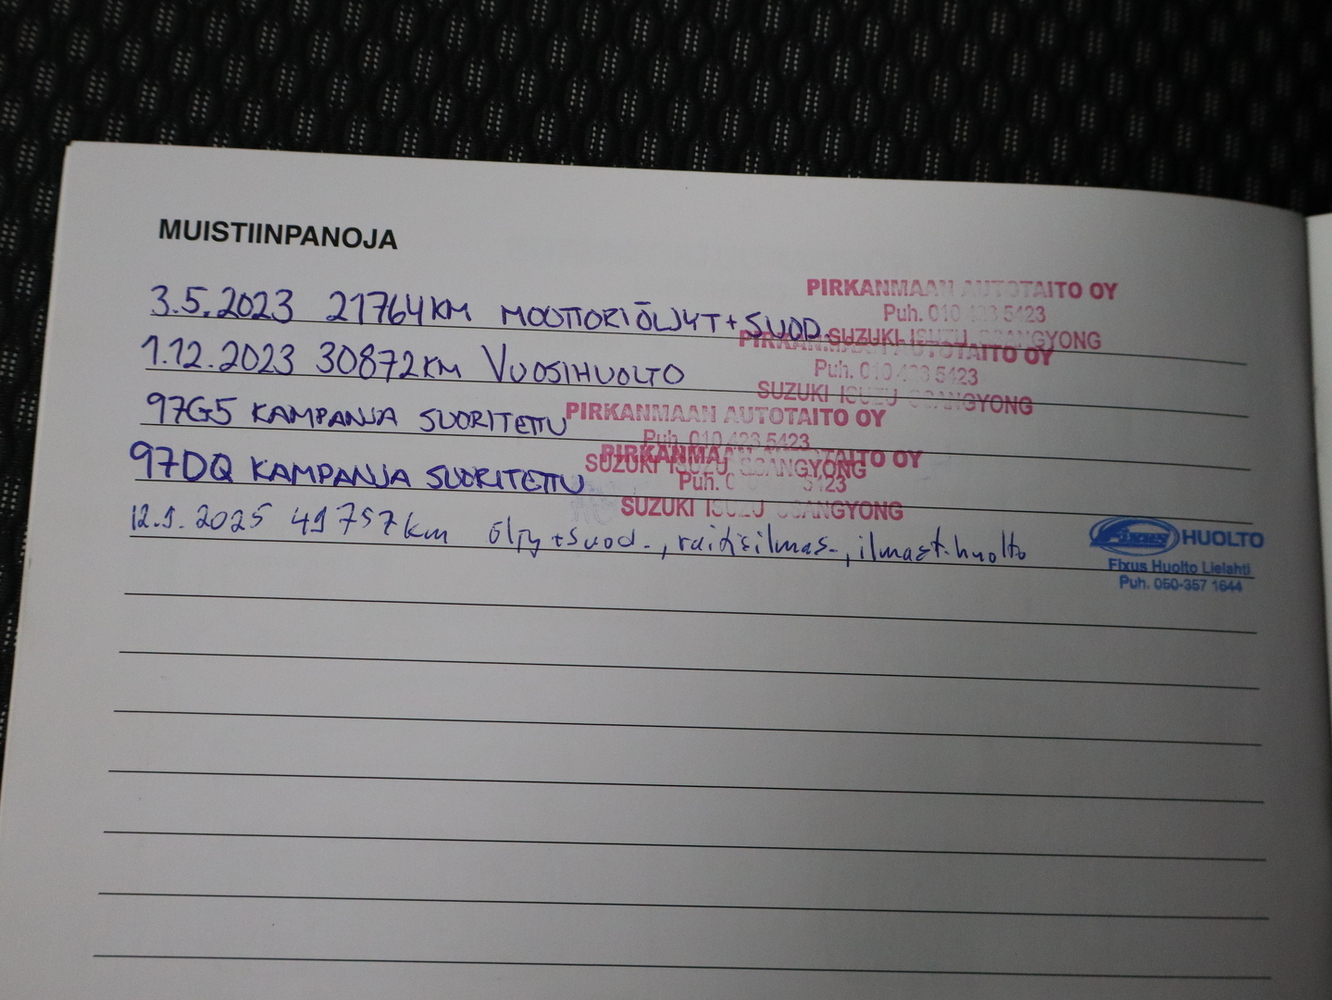 MUISTIINPANOJA
3.5.2023 21764KM MOOTTORIÖLJYT+SUOD.
PIRKANMAAN AUTOTAITO OY
Puh. 010 423 5423
SUZUKI ISUZU SSANGYONG
1.12.2023 30872KM VUOSIHUOLTO
PIRKANMAAN AUTOTAITO OY
Puh. 010 423 5423
SUZUKI ISUZU SSANGYONG
97G5 KAMPANJA SUORITETTU
PIRKANMAAN AUTOTAITO OY
Puh. 010 423 5423
SUZUKI ISUZU SSANGYONG
97DQ KAMPANJA SUORITETTU
PIRKANMAAN AUTOTAITO OY
Puh. 5423
SUZUKI ISUZU SSANGYONG
12.9.2025 49757km öljy+suod., raitisilmas., ilmast.huolto
Fixus HUOLTO
Fixus Huolto Lielahti
Puh. 050-357 1644